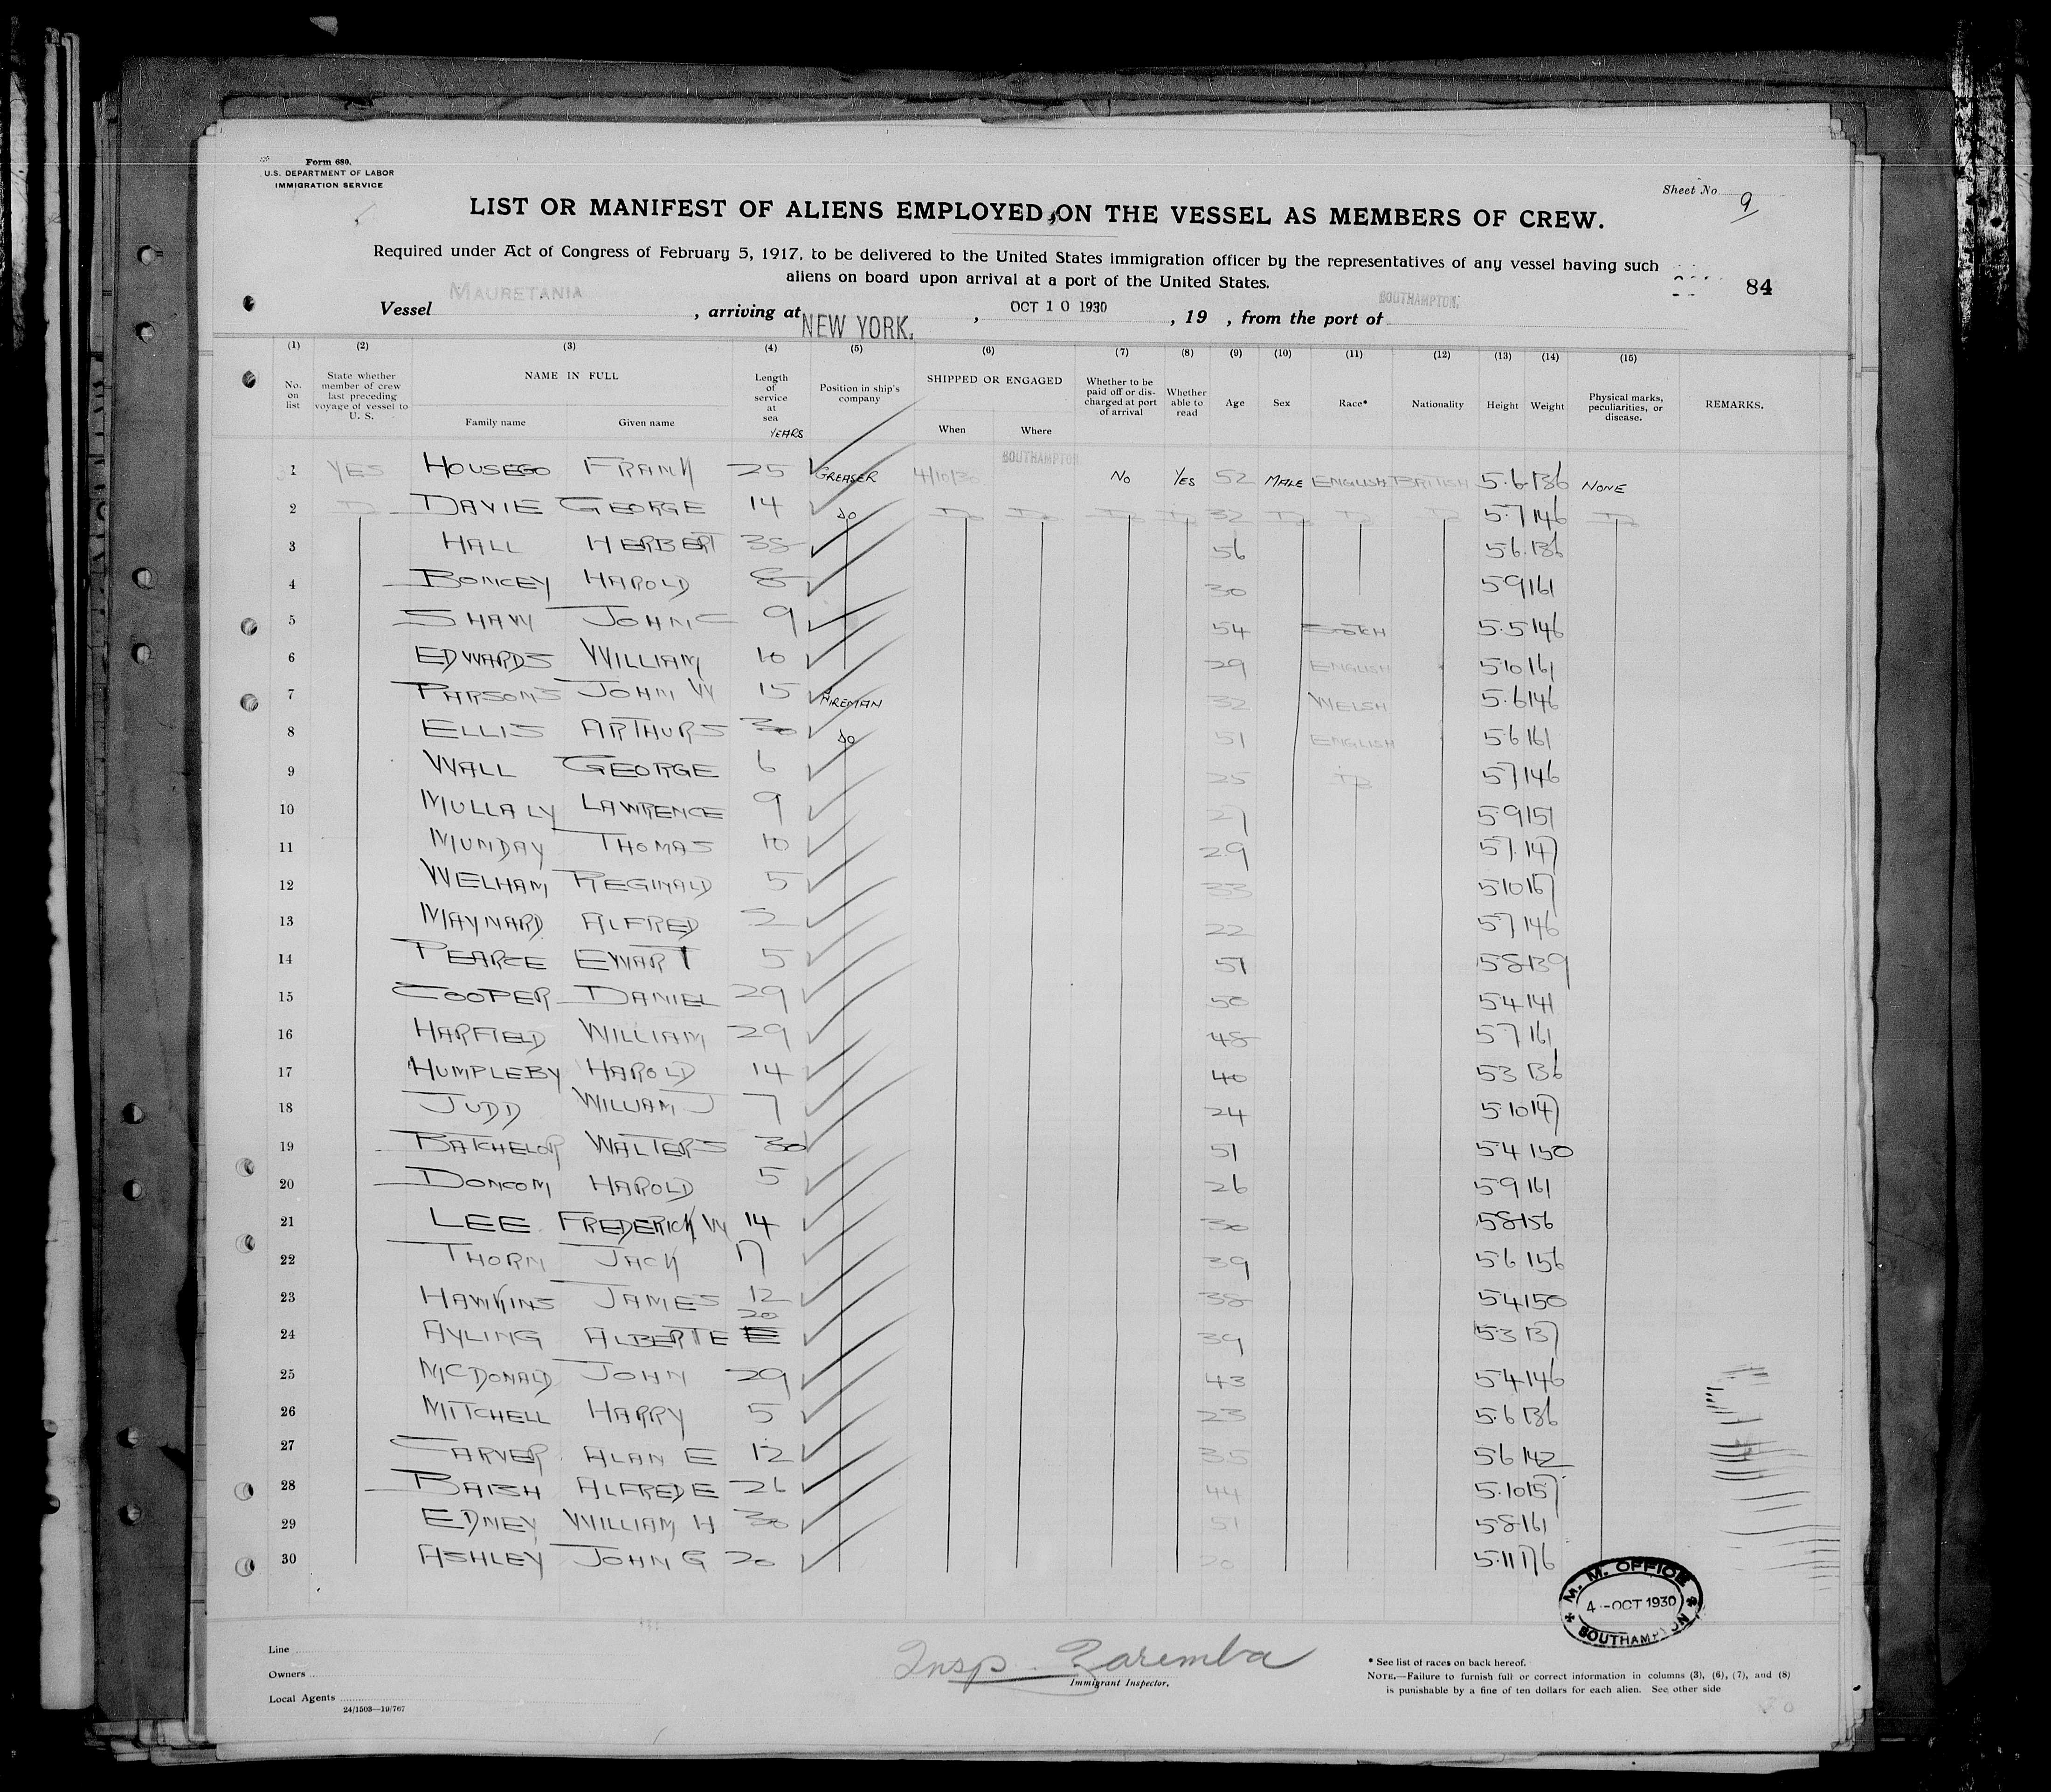 Form 680.
U.S. DEPARTMENT OF LABOR
IMMIGRATION SERVICE
Sheet No. 9
LIST OR MANIFEST OF ALIENS EMPLOYED ON THE VESSEL AS MEMBERS OF CREW.
Required under Act of Congress of February 5, 1917, to be delivered to the United States immigration officer by the representatives of any vessel having such
aliens on board upon arrival at a port of the United States.
84
Vessel MAURETANIA, arriving at NEW YORK., OCT 10 1930, 19 , from the port of SOUTHAMPTON.
(1) (2) (3) (4) (5) (6) (7) (8) (9) (10) (11) (12) (13) (14) (15)
No. on list
State whether member of crew last preceding voyage of vessel to U. S.
NAME IN FULL
Family name Given name
Length of service at sea YEARS
Position in ship's company
SHIPPED OR ENGAGED
When Where
Whether to be paid off or discharged at port of arrival
Whether able to read
Age
Sex
Race*
Nationality
Height
Weight
Physical marks, peculiarities, or disease.
REMARKS.
1 YES HOUSEGO FRANK 25 GREASER 4/10/30 SOUTHAMPTON No YES 52 MALE ENGLISH BRITISH 5.6 136 NONE
2 Do DAVIE GEORGE 14 do Do Do Do Do 32 Do Do Do 5.7 146 Do
3 HALL HERBERT 38 56 5 6 136
4 BONCEY HAROLD 8 30 5 9 161
5 SHAW JOHN C 9 54 SCOTCH 5.5 146
6 EDWARDS WILLIAM 10 29 ENGLISH 5 10 161
7 PARSONS JOHN W 15 FIREMAN 32 WELSH 5.6 146
8 ELLIS ARTHUR S 30 do 51 ENGLISH 5 6 161
9 WALL GEORGE 6 25 Do 5 7 146
10 MULLALY LAWRENCE 9 27 5 9 151
11 MUNDAY THOMAS 10 29 5 7 147
12 WELHAM REGINALD 5 33 5 10 167
13 MAYNARD ALFRED 2 22 5 7 146
14 PEARCE EWART 5 51 5 8 139
15 COOPER DANIEL 29 50 5 4 141
16 HARFIELD WILLIAM 29 48 5 7 161
17 HUMPLEBY HAROLD 14 40 5 3 136
18 JUDD WILLIAM J 7 24 5 10 147
19 BATCHELOR WALTER S 30 51 5 4 150
20 DONCOM HAROLD 5 26 5 9 161
21 LEE FREDERICK W 14 30 5 8 156
22 THORN JACK 17 39 5 6 156
23 HAWKINS JAMES 12 38 5 4 150
24 AYLING ALBERT E 20 39 5 3 137
25 MCDONALD JOHN 29 43 5 4 146
26 MITCHELL HARRY 5 23 5.6 136
27 CARVER ALAN E 12 35 5 6 142
28 BAISH ALFRED E 26 44 5.10 157
29 EDNEY WILLIAM H 30 51 5 8 161
30 ASHLEY JOHN G 20 5.11 176
M. M. OFFICE
4 - OCT 1930
SOUTHAMPTON
Line
Owners
Local Agents
24/1503—19/767
Insp. Zaremba
Immigrant Inspector.
* See list of races on back hereof.
NOTE.—Failure to furnish full or correct information in columns (3), (6), (7), and (8)
is punishable by a fine of ten dollars for each alien. See other side